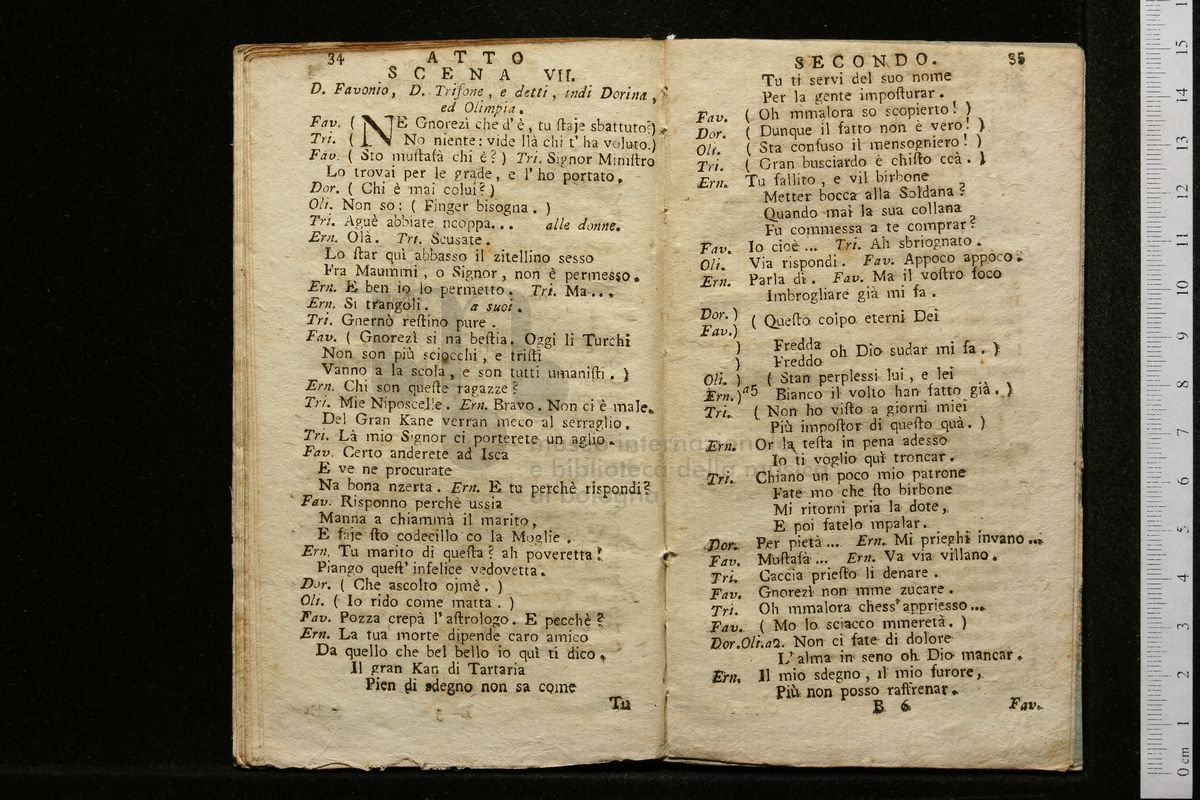 34 ATTO
SCENA VII.
D. Favonio, D. Trifone, e detti, indi Dorina,
ed Olimpia.
Fav. ( NE Gnorezì che d'è, tu ſtaje sbattuto?)
Tri. ( No niente: vide llà chi t'ha voluto.)
Fav. ( Sto muſtafà chi è? ) Tri. Signor Miniſtro
Lo trovai per le grade, e l'ho portato.
Dor. ( Chi è mai colui? )
Oli. Non so: ( Finger bisogna. )
Tri. Aguè abbiate ncoppa... alle donne.
Ern. Olà. Tri. Scusate.
Lo ſtar quì abbasso il zitellino sesso
Fra Maummi, o Signor, non è permesso.
Ern. E ben io lo permetto. Tri. Ma...
Ern. Si trangoli. a suoi.
Tri. Gnernò reſtino pure.
Fav. ( Gnorezì si na beſtia. Oggi li Turchi
Non son più sciocchi, e triſti
Vanno a la scola, e son tutti umaniſti. )
Ern. Chi son queſte ragazze?
Tri. Mie Niposcelle. Ern. Bravo. Non ci è male.
Del Gran Kane verran meco al serraglio.
Tri. Là mio Signor ci porterete un aglio.
Fav. Certo anderete ad Isca
E ve ne procurate
Na bona nzerta. Ern. E tu perchè rispondi?
Fav. Risponno perchè ussia
Manna a chiammà il marito,
E faje ſto codecillo co la Moglie.
Ern. Tu marito di queſta? ah poveretta!
Piango queſt'infelice vedovetta.
Dor. ( Che ascolto ojmè. )
Oli. ( Io rido come matta. )
Fav. Pozza crepà l'aſtrologo. E pecchè?
Ern. La tua morte dipende caro amico
Da quello che bel bello io quì ti dico.
Il gran Kan di Tartaria
Pien di sdegno non sa come
Tu
SECONDO. 35
Tu ti servi del suo nome
Per la gente impoſturar.
Fav. ( Oh mmalora so scopierto! )
Dor. ( Dunque il fatto non è vero! )
Oli. ( Sta confuso il mensogniero! )
Tri. ( Gran busciardo è chiſto ccà. )
Ern. Tu fallito, e vil birbone
Metter bocca alla Soldana?
Quando mai la sua collana
Fu commessa a te comprar?
Fav. Io cioè... Tri. Ah sbriognato.
Oli. Via rispondi. Fav. Appoco appoco.
Ern. Parla di. Fav. Ma il voſtro foco
Imbrogliare già mi fa.
Dor. )
Fav. ) ( Queſto colpo eterni Dei
) Fredda
) Freddo oh Dio sudar mi fa. )
Oli. ) ( Stan perplessi lui, e lei
Ern. ) a5 Bianco il volto han fatto già. )
Tri. ( Non ho viſto a giorni miei
Più impoſtor di queſto quà. )
Ern. Or la teſta in pena adesso
Io ti voglio quì troncar.
Tri. Chiano un poco mio patrone
Fate mo che ſto birbone
Mi ritorni pria la dote,
E poi fatelo mpalar.
Dor. Per pietà... Ern. Mi prieghi invano...
Fav. Muſtafà... Ern. Va via villano.
Tri. Caccia prieſto li denare.
Fav. Gnorezì non mme zucare.
Tri. Oh mmalora chess'appriesso...
Fav. ( Mo lo sciacco mmeretà. )
Dor.Oli.a2. Non ci fate di dolore
L'alma in seno oh Dio mancar.
Ern. Il mio sdegno, il mio furore,
Più non posso raffrenar.
B 6 Fav.
museo internazionale
e biblioteca della musica
di bologna
0 cm 1 2 3 4 5 6 7 8 9 10 11 12 13 14 15